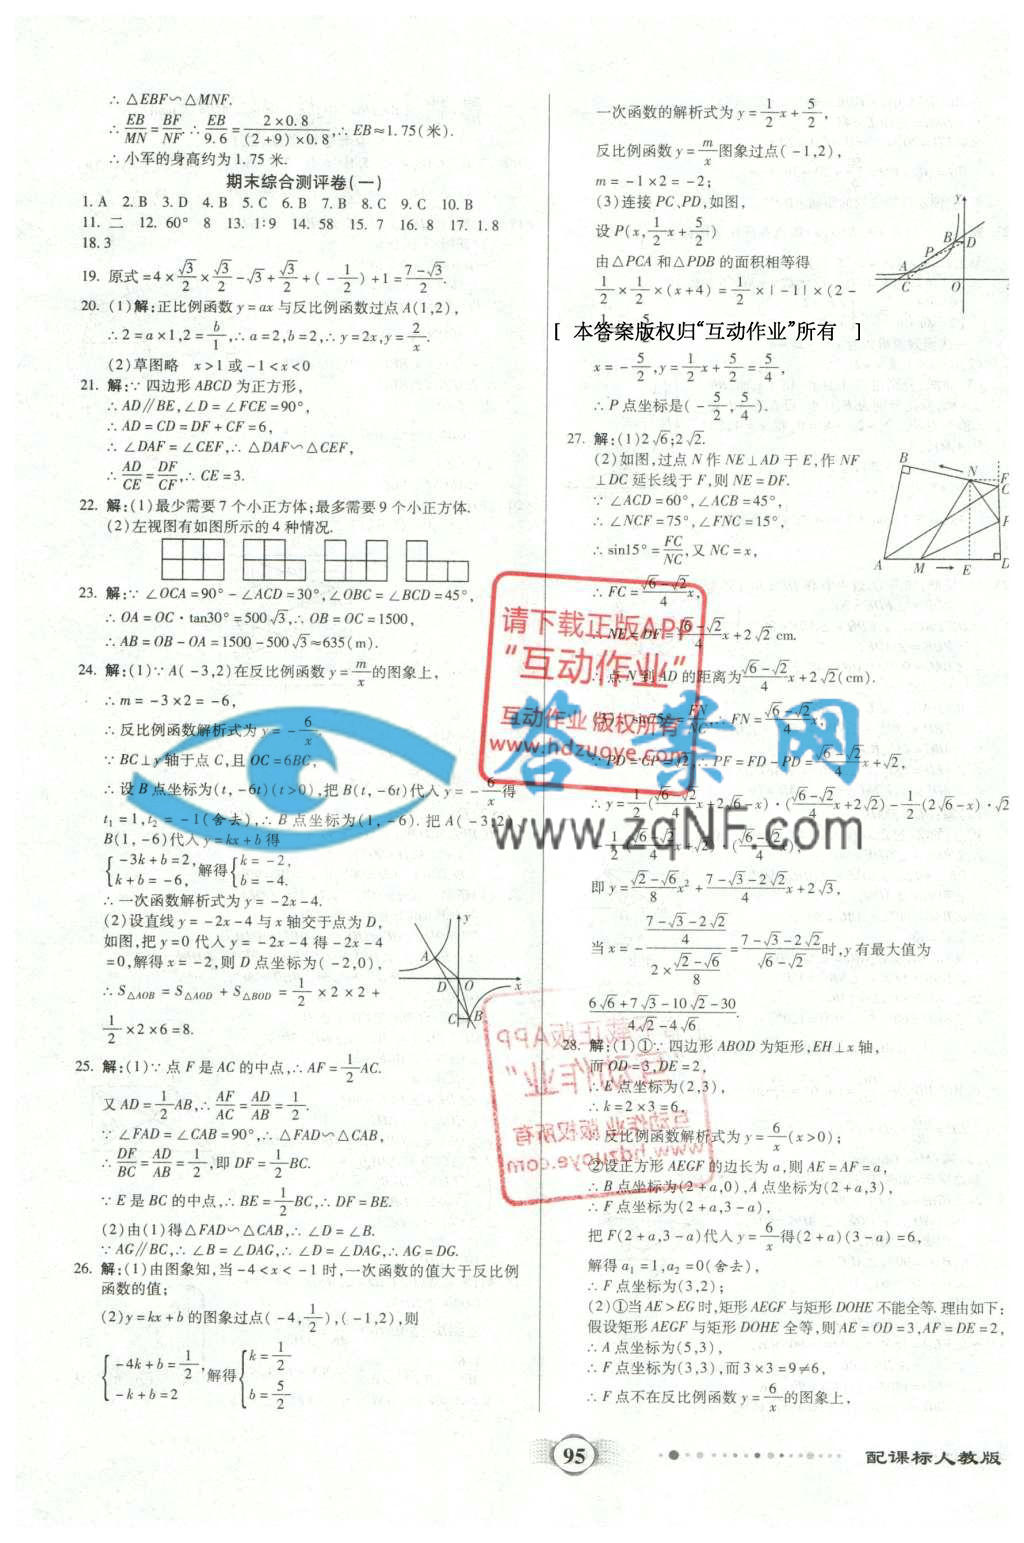 ∴ △EBF∽△MNF.
∴ EB/MN = BF/NF. ∴ EB/9.6 = (2×0.8)/((2+9)×0.8), ∴ EB≈1.75(米).
∴ 小军的身高约为 1.75 米.
期末综合测评卷(一)
1. A 2. B 3. D 4. B 5. C 6. B 7. B 8. C 9. C 10. B
11. 二 12. 60° 8 13. 1∶9 14. 58 15. 7 16. 8 17. 1.8
18. 3
19. 原式=4×√3/2×√3/2-√3+√3/2+(-1/2)+1=(7-√3)/2.
20. (1)解:∵正比例函数 y=ax 与反比例函数过点 A(1,2),
∴ 2=a×1,2=b/1,∴ a=2,b=2,∴ y=2x,y=2/x.
(2)草图略 x>1 或 -1<x<0
21. 解:∵ 四边形 ABCD 为正方形,
∴ AD∥BE,∠D=∠FCE=90°,
∴ AD=CD=DF+CF=6,
∴ ∠DAF=∠CEF,∴ △DAF∽△CEF,
∴ AD/CE=DF/CF,∴ CE=3.
22. 解:(1)最少需要 7 个小正方体;最多需要 9 个小正方体.
(2)左视图有如图所示的 4 种情况.
23. 解:∵ ∠OCA=90°-∠ACD=30°,∠OBC=∠BCD=45°,
∴ OA=OC·tan30°=500√3,∴ OB=OC=1500,
∴ AB=OB-OA=1500-500√3≈635(m).
24. 解:(1)∵ A(-3,2)在反比例函数 y=m/x 的图象上,
∴ m=-3×2=-6,
∴ 反比例函数解析式为 y=-6/x.
∵ BC⊥y 轴于点 C,且 OC=6BC,
∴ 设 B 点坐标为(t,-6t)(t>0),把 B(t,-6t)代入 y=-6/x 得
t₁=1,t₂=-1(舍去),∴ B 点坐标为(1,-6).把 A(-3,2)
B(1,-6)代入 y=kx+b 得
{-3k+b=2, k+b=-6, 解得{k=-2, b=-4.
∴ 一次函数解析式为 y=-2x-4.
(2)设直线 y=-2x-4 与 x 轴交于点为 D,
如图,把 y=0 代入 y=-2x-4 得 -2x-4
=0,解得 x=-2,则 D 点坐标为(-2,0),
∴ S△AOB=S△AOD+S△BOD=1/2×2×2+
1/2×2×6=8.
A D O x y C B
25. 解:(1)∵ 点 F 是 AC 的中点,∴ AF=1/2AC.
又 AD=1/2AB,∴ AF/AC=AD/AB=1/2.
∵ ∠FAD=∠CAB=90°,∴ △FAD∽△CAB,
∴ DF/BC=AD/AB=1/2,即 DF=1/2BC.
∵ E 是 BC 的中点,∴ BE=1/2BC,∴ DF=BE.
(2)由(1)得△FAD∽△CAB,∴ ∠D=∠B.
∵ AG∥BC,∴ ∠B=∠DAG,∴ ∠D=∠DAG,∴ AG=DG.
26. 解:(1)由图象知,当 -4<x<-1 时,一次函数的值大于反比例
函数的值;
(2)y=kx+b 的图象过点(-4,1/2),(-1,2),则
{-4k+b=1/2, -k+b=2 , 解得{k=1/2 b=5/2
一次函数的解析式为 y=1/2x+5/2,
反比例函数 y=m/x图象过点(-1,2),
m=-1×2=-2;
(3)连接 PC、PD,如图,
设 P(x,1/2x+5/2)
由△PCA 和△PDB 的面积相等得
1/2×1/2×(x+4)=1/2×|-1|×(2-
[ 本答案版权归“互动作业”所有 ]
x=-5/2,y=1/2x+5/2=5/4,
∴ P 点坐标是(-5/2,5/4).
y B D P A C O
27. 解:(1)2√6;2√2.
(2)如图,过点 N 作 NE⊥AD 于 E,作 NF
⊥DC 延长线于 F,则 NE=DF.
∵ ∠ACD=60°,∠ACB=45°,
∴ ∠NCF=75°,∠FNC=15°,
∴ sin15°=FC/NC,又 NC=x,
∴ FC=(√6-√2)/4x,
∴ NE=DF=(√6-√2)/4x+2√2 cm.
∴ 点 N 到 AD 的距离为(√6-√2)/4x+2√2(cm).
FN/NC,∴ FN=
∵ PD=CP=√2,∴ PF=FD-PD=(√6-√2)/4x+√2,
即 y=(√2-√6)/8x²+(7-√3-2√2)/4x+2√3,
当 x=-((7-√3-2√2)/4)/(2×(√2-√6)/8)=(7-√3-2√2)/(√6-√2)时,y 有最大值为
(6√6+7√3-10√2-30)/(4√2-4√6).
B N F A M E
28. 解:(1)①∵ 四边形 ABOD 为矩形,EH⊥x 轴,
而 OD=3,DE=2,
∴ E 点坐标为(2,3),
∴ k=2×3=6,
∴ 反比例函数解析式为 y=6/x(x>0);
②设正方形 AEGF 的边长为 a,则 AE=AF=a,
∴ B 点坐标为(2+a,0),A 点坐标为(2+a,3),
∴ F 点坐标为(2+a,3-a),
把 F(2+a,3-a)代入 y=6/x得(2+a)(3-a)=6,
解得 a₁=1,a₂=0(舍去),
∴ F 点坐标为(3,2);
(2)①当 AE>EG 时,矩形 AEGF 与矩形 DOHE 不能全等.理由如下:
假设矩形 AEGF 与矩形 DOHE 全等,则 AE=OD=3,AF=DE=2,
∴ A 点坐标为(5,3),
∴ F 点坐标为(3,3),而 3×3=9≠6,
∴ F 点不在反比例函数 y=6/x的图象上,
请下载正版APP
“互动作业”
互动作业 版权所有
www.hdzuoye.com
答案网
www.zqNF.com
95
配课标人教版